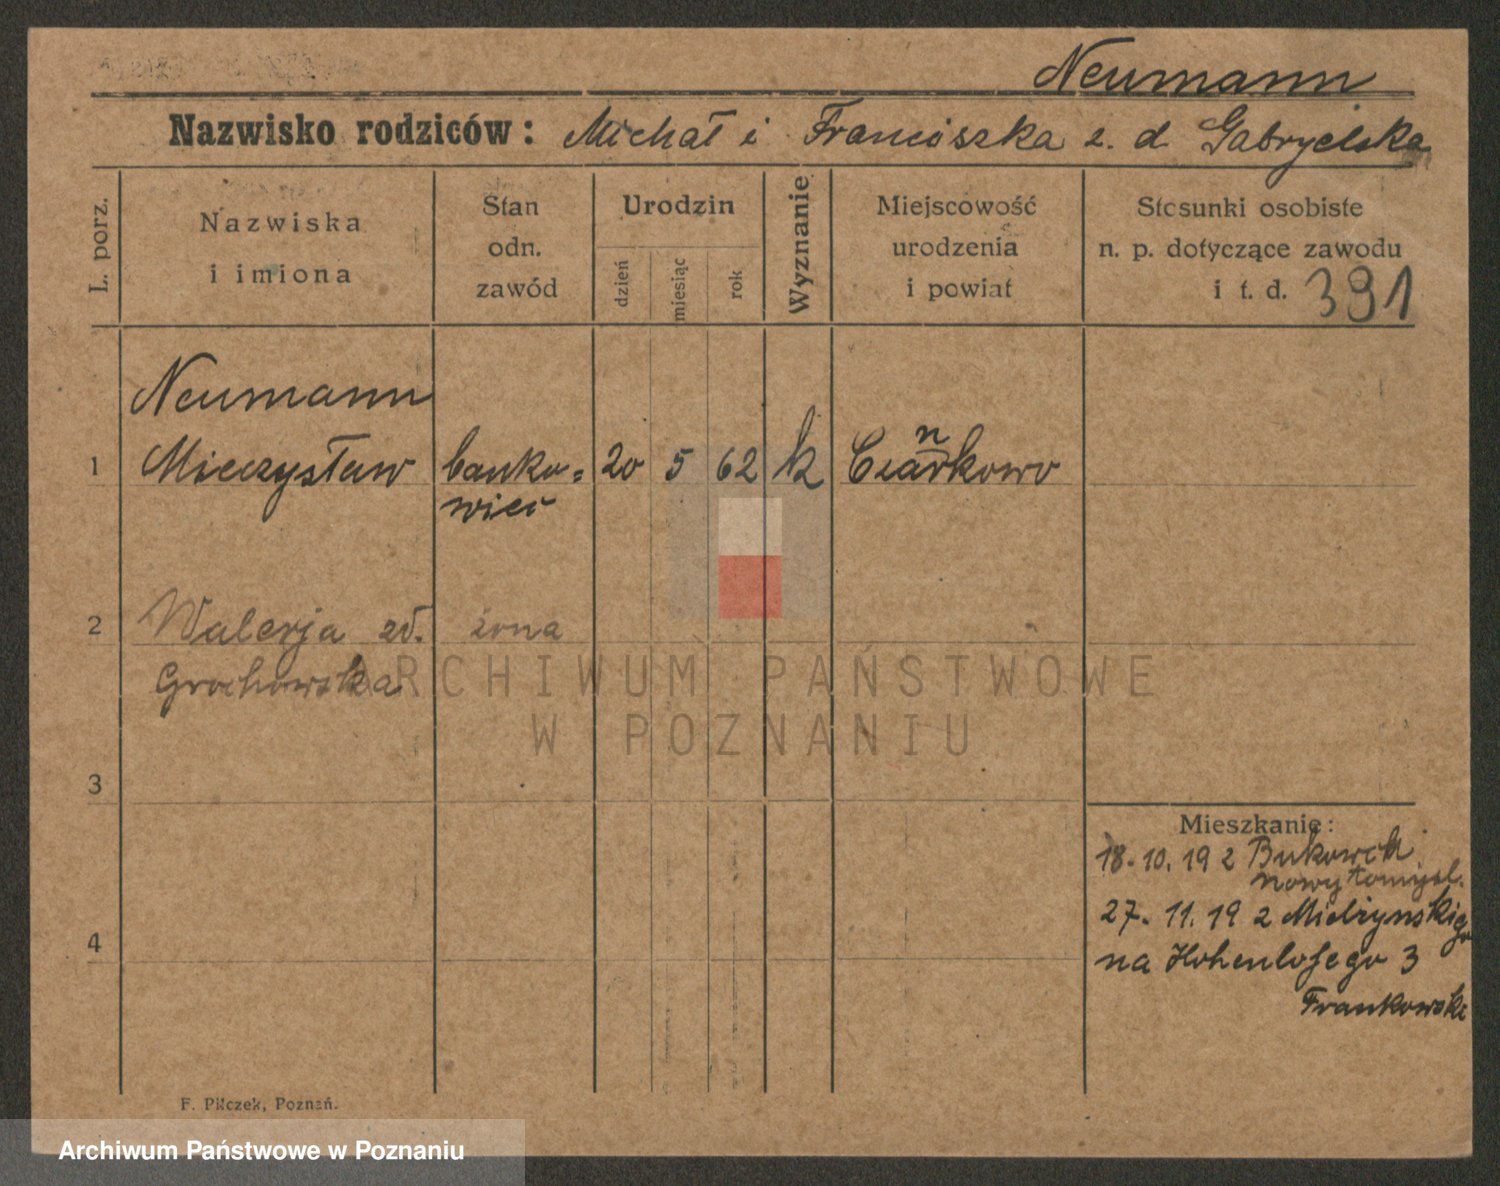 Neumann
Nazwisko rodziców: Michał i Franciszka z. d. Gabryelska
L. porz.
Nazwiska i imiona
Stan odn. zawód
Urodzin
dzień
miesiąc
rok
Wyznanie
Miejscowość urodzenia i powiat
Stosunki osobiste n. p. dotyczące zawodu i t. d. 391
Neumann
1 Mieczysław banko= 20 5 62 k Czarnkowo
wiec
2 Walerja zd. żona
Grochowska
3
Mieszkanie:
18. 10. 19 z Bukowca
Nowy Tomyśl.
27. 11. 19 z Mielżynskiego
4
na Hohenlohego 3
Frankowski
F. Pilczek, Poznań.
ARCHIWUM PAŃSTWOWE
W POZNANIU
Archiwum Państwowe w Poznaniu